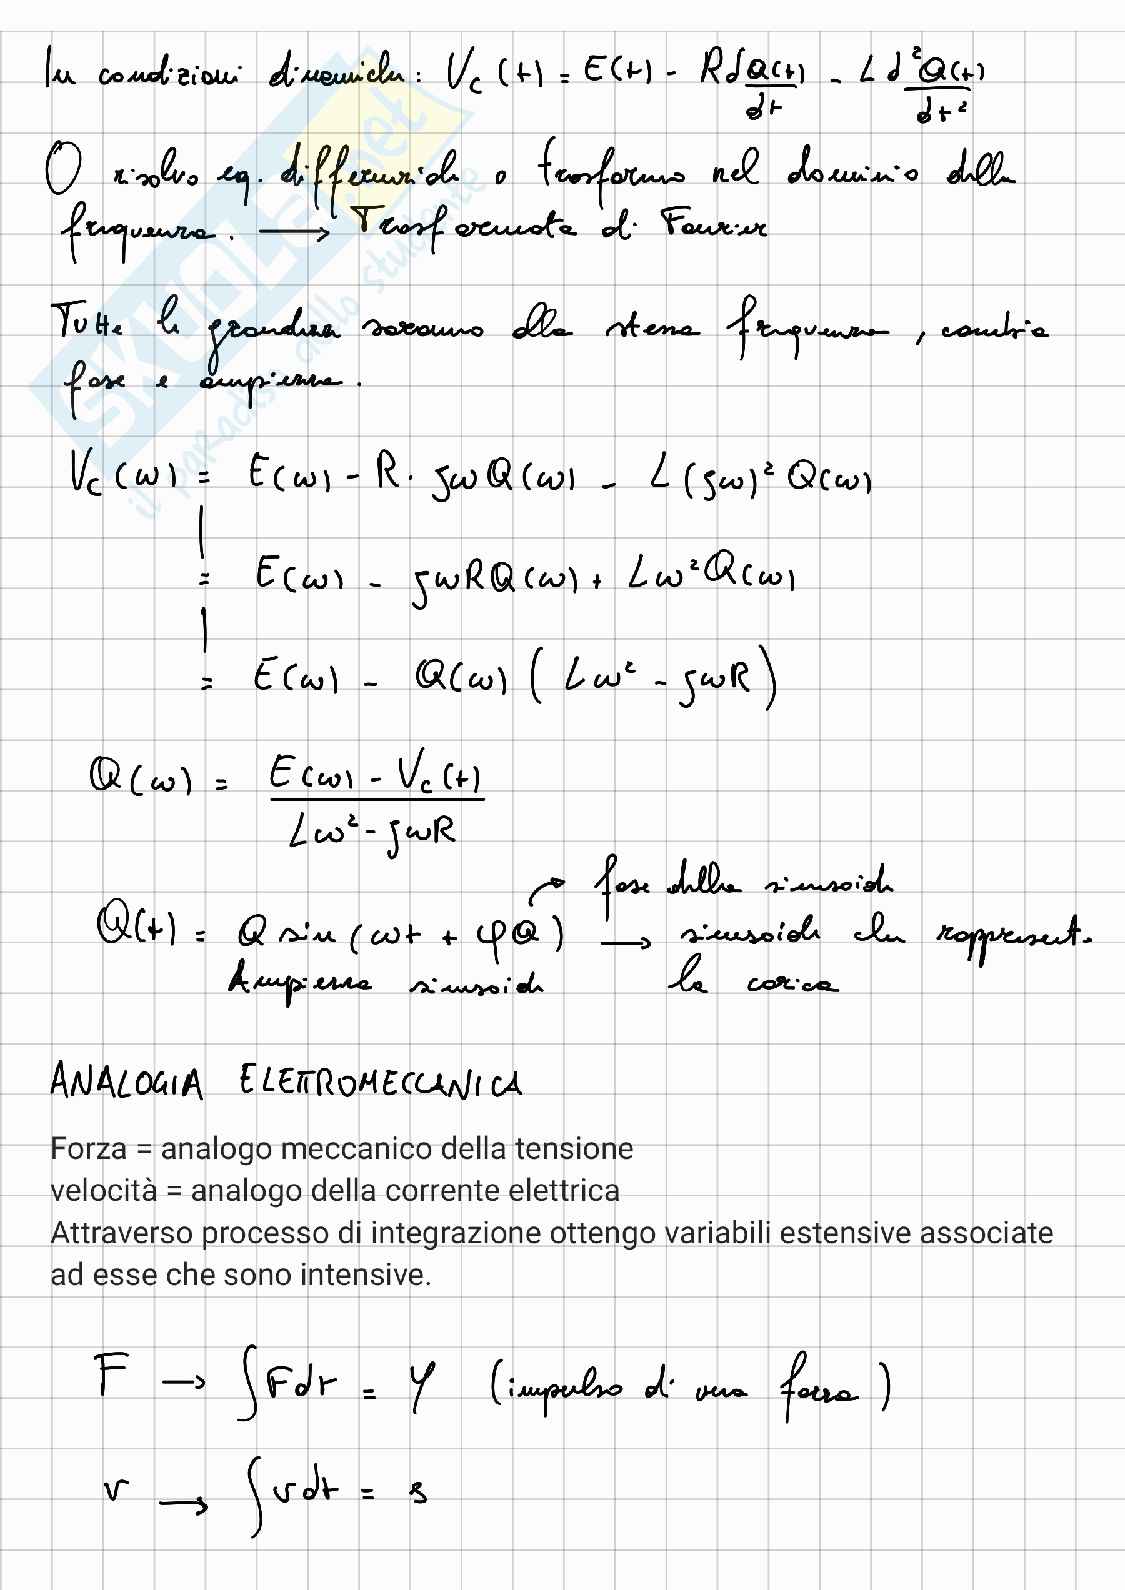 In condizioni dinamiche: Vc (t) = E(t) - R dQ(t)/dt - L d²Q(t)/dt²
O risolvo eq. differenziale o trasformo nel dominio della
frequenza. → Trasformata di Fourier
Tutte le grandezze saranno alla stessa frequenza, cambia
fase e ampiezza.
Vc (ω) = E(ω) - R · jωQ(ω) - L (jω)² Q(ω)
= E(ω) - jωRQ(ω) + Lω²Q(ω)
= E(ω) - Q(ω) ( Lω² - jωR )
Q(ω) = E(ω) - Vc (t) / Lω² - jωR
fase della sinusoide
Q(t) = Q sin (ωt + φQ) → sinusoide che rappresent.
Ampiezza sinusoide la carica
ANALOGIA ELETTROMECCANICA
Forza = analogo meccanico della tensione
velocità = analogo della corrente elettrica
Attraverso processo di integrazione ottengo variabili estensive associate
ad esse che sono intensive.
F → ∫ F dt = γ (impulso di una forza)
v → ∫ v dt = s
SKUOLA.net
il paradiso dello studente